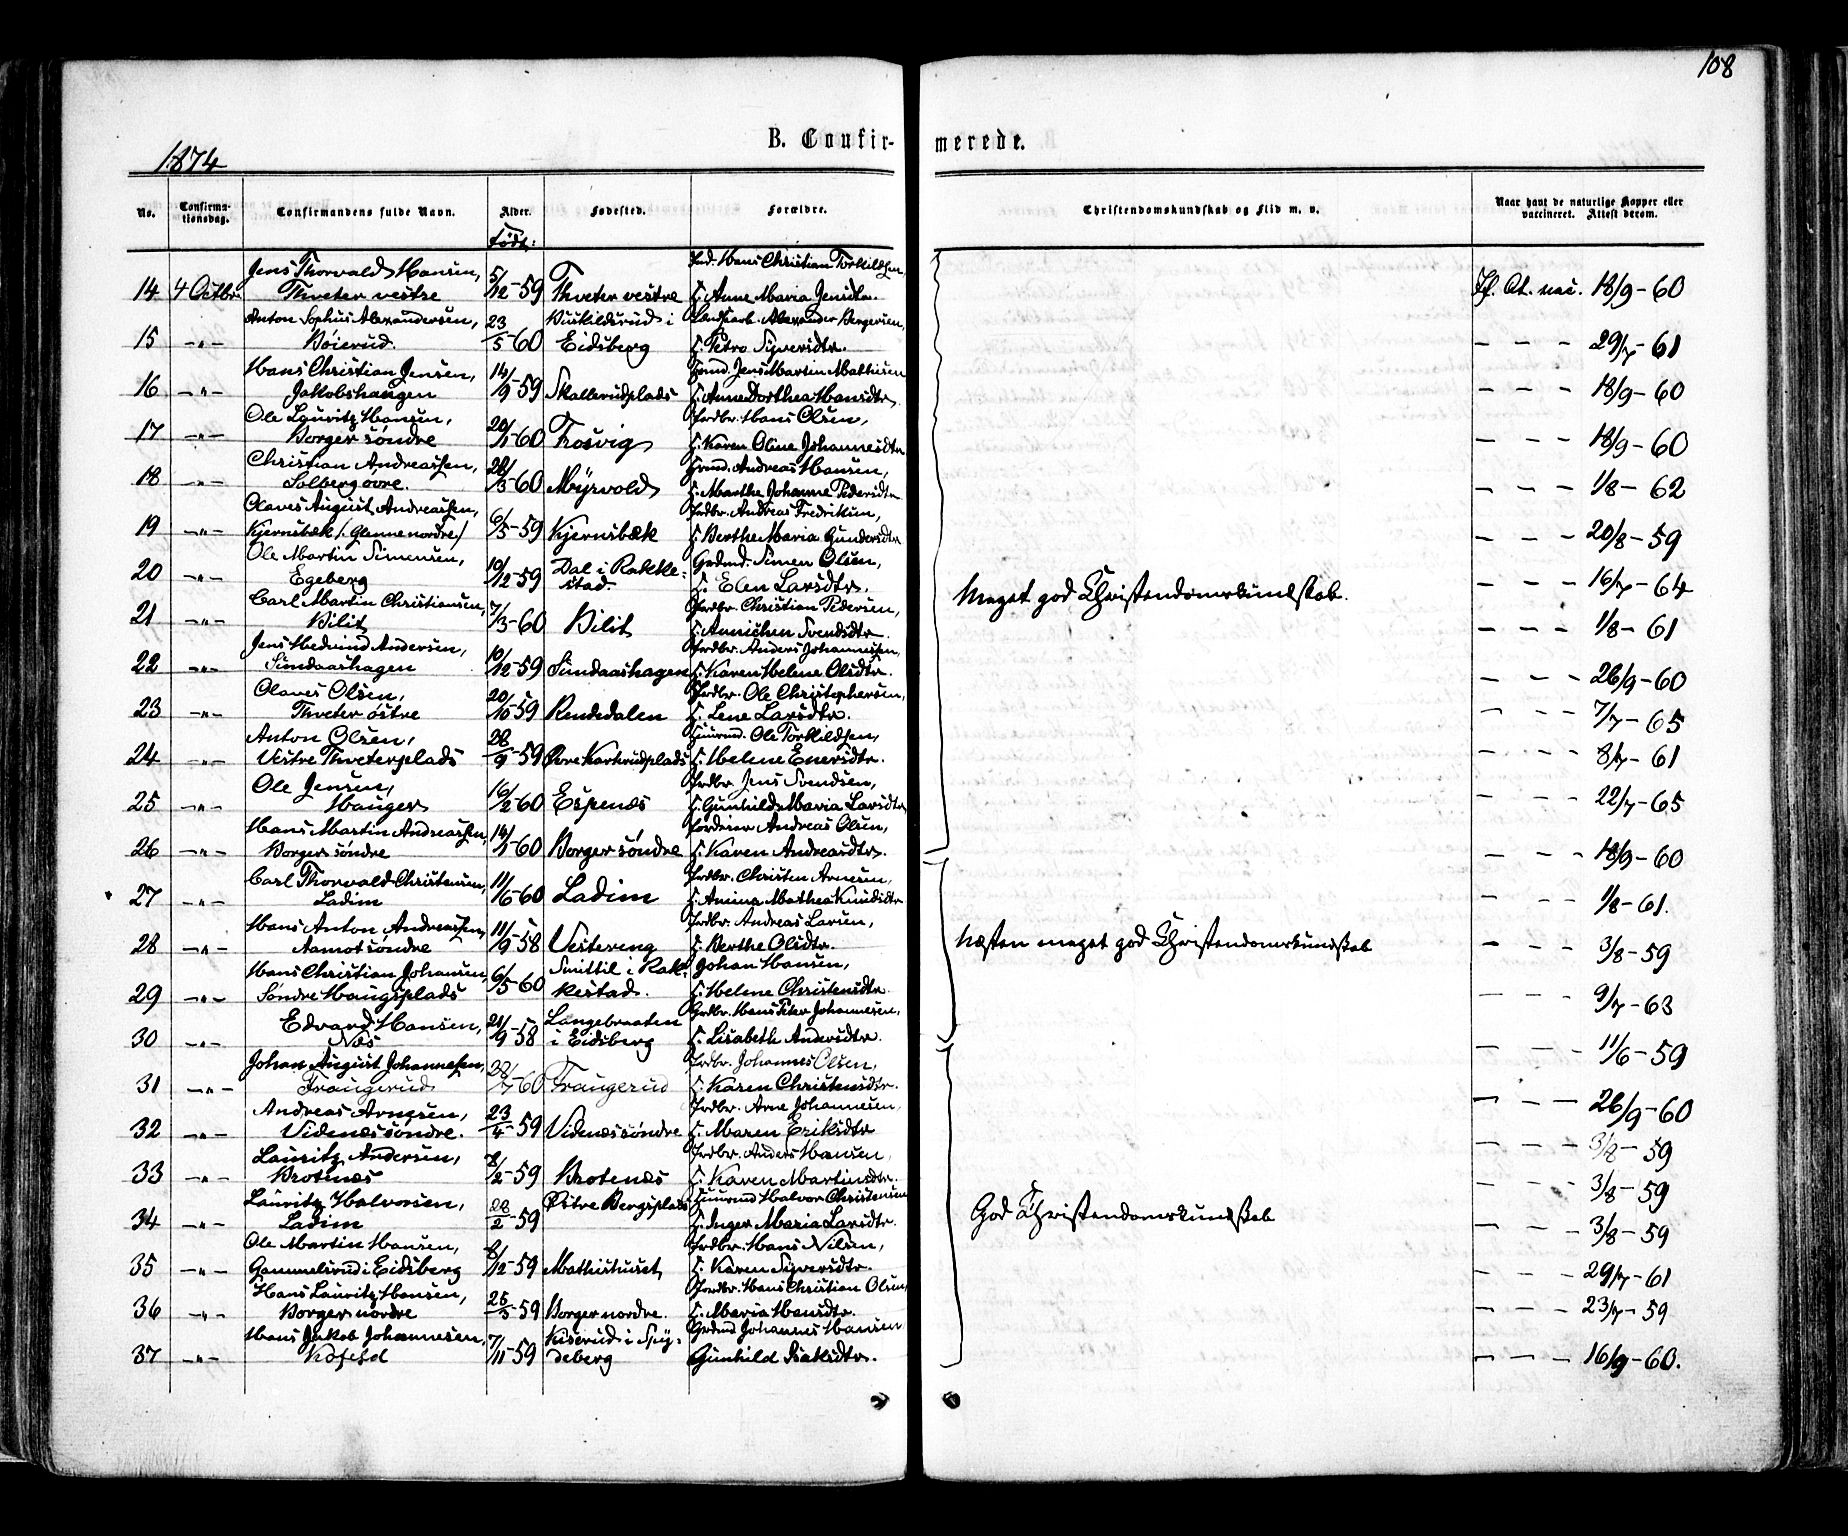 108
B. Confir- merede.
1874
No. Confirma- tionsdag. Confirmandens fulde Navn. Alder. Fødested. Forældre. Christendomskundskab og Flid m. v. Naar havt de naturlige Kopper eller vaccineret. Attest derom.
Født:
Jens Thorvald Hansen, Hans Christian Torkildsen,
14 4 Octbr. Thveter vestre 5/12-59 Thveter vestre Anne Maria Jensdtr. 18/9-60
Anton Sophus Alexandersen, Buskildsrud i Alexander Bergersen,
15 -"- Bøierud. 23/5-60 Eidsberg Petra Syversdtr. - - - 29/7-61
Hans Christian Jensen, Jens Martin Mathisen
16 -"- Jakobshaugen 14/9-59 Skallerudplads Anne Dorthea Hansdtr. - - - 18/9-60
Ole Lauritz Hansen, Grdbr. Hans Olsen,
17 -"- Borger søndre 20/1-60 Trosvig Karen Oline Johannesdtr - - - 18/9-60
Christian Andreassen, Andreas Hansen,
18 -"- Solberg øvre. 28/3-60 Myrvold Marthe Johanne Pedersdtr - - - 1/8-62
Olaves August Andreassen, Grdbr. Andreas Fredriksen,
19 -"- Kjernsbæk /: Glenne nordre / 6/5-59 Kjernsbæk Berthe Maria Gundersdtr - - - 20/8-59
Ole Martin Simensen, Dal i Rakke- Simen Olsen,
20 -"- Egeberg 10/12-59 stad. Elen Larsdtr. - - - 16/7-64
Meget god Christendomskundskab.
Carl Martin Christiansen, Grdbr. Christian Pedersen,
21 -"- Bilit 7/3-60 Bilit Annichen Svendsdtr. - - - 1/8-61
Jens Hedvind Andersen, Grdbr. Anders Johannessen,
22 -"- Sundaashagen 10/12-59 Sundaashagen Karen Helene Olsdtr. - - - 26/9-60
Olaves Olsen, Grdbr. Ole Christophersen,
23 -"- Thveter østre 20/10-59 Rendedalen Lene Larsdtr. - - - 7/7-65
Anton Olsen, Ole Torkildsen,
24 -"- Vestre Thveterplads 28/9-59 Helene Enersdtr. - - - 8/7-61
Ole Jensen, Grdbr. Jens Svendsen,
25 -"- Hauger 16/2-60 Espenæs Gunhild Maria Larsdtr - - - 22/7-65
Hans Martin Andreassen, Andreas Olsen,
26 -"- Borger søndre 14/1-60 Borger søndre Karen Andreasdtr. - - - 18/9-60
Carl Thorvald Christensen, Grdbr. Christen Arnesen,
27 -"- Ladim 11/6-60 Ladim Mathea Knudsdtr - - - 1/8-61.
Hans Anton Andreassen, Grdbr. Andreas Larsen,
28 -"- Aamot søndre 11/9-58 Vestereng Berthe Olsdtr. Næsten meget god Christendomskundskab - - - 3/8-59
Hans Christian Johansen, Smittil i Rak- Johan Hansen,
29 -"- Søndre Haugsplads 6/5-60 kestad. Helene Christensdtr. - - - 9/7-63
Edvard Hansen, Langebraaten Hans Peter Johannesen,
30 -"- Næs 21/9-58 i Eidsberg Lisabeth Andersdtr. - - - 11/6-59
Johan August Johannessen, Grdbr. Johannes Olsen,
31 -"- Fraugerud 60 Fraugerud Karen Christensdtr. - - - 26/9-60
Andreas Arnesen, Grdbr. Arne Johannesen,
32 -"- Videnæs søndre. 23/4-59 Videnæs søndre Maren Eriksdtr - - - 3/8-59
Lauritz Andersen, Grdbr. Anders Hansen,
33 -"- Brotnæs 8/2-59 Brotenæs Karen Martinsdtr. - - - 3/8-59
Lauritz Halvorsen, Østre Bergsplads Halvor Christensen
34 -"- Ladim 28/2-59 Inger Maria Larsdtr. God Christendomskundskab - - - 3/8-59
Ole Martin Hansen, Grdbr. Hans Nilsen,
35 -"- Gammelsrud i Eidsberg 8/12-59 Mathishuset Karen Syversdtr. - - - 29/7-61
Hans Lauritz Hansen, Grdbr. Hans Christian Olsen,
36 -"- Borger nordre 59 Borger nordre. Maria Hansdtr. - - - 23/7-59
Hans Jakob Johannesen, Kiserud i Spy- Johannes Hansen
37 -"- 7/11-59 deberg Gunhild Isaksdtr. - - - 16/9-60.